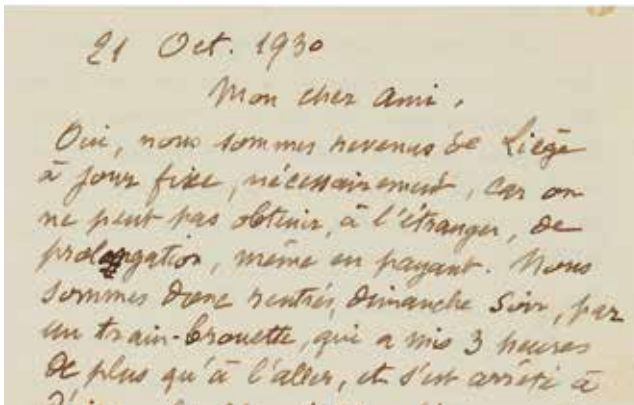 21 Oct. 1930
Mon cher ami.
Oui, nous sommes revenus de Liège
à jour fixe, nécessairement, car on
ne peut pas obtenir, à l'étranger, de
prolongation, même en payant. Nous
sommes donc rentrés, dimanche soir, par
un train-brouette, qui a mis 3 heures
de plus qu'à l'aller, et s'est arrêté à